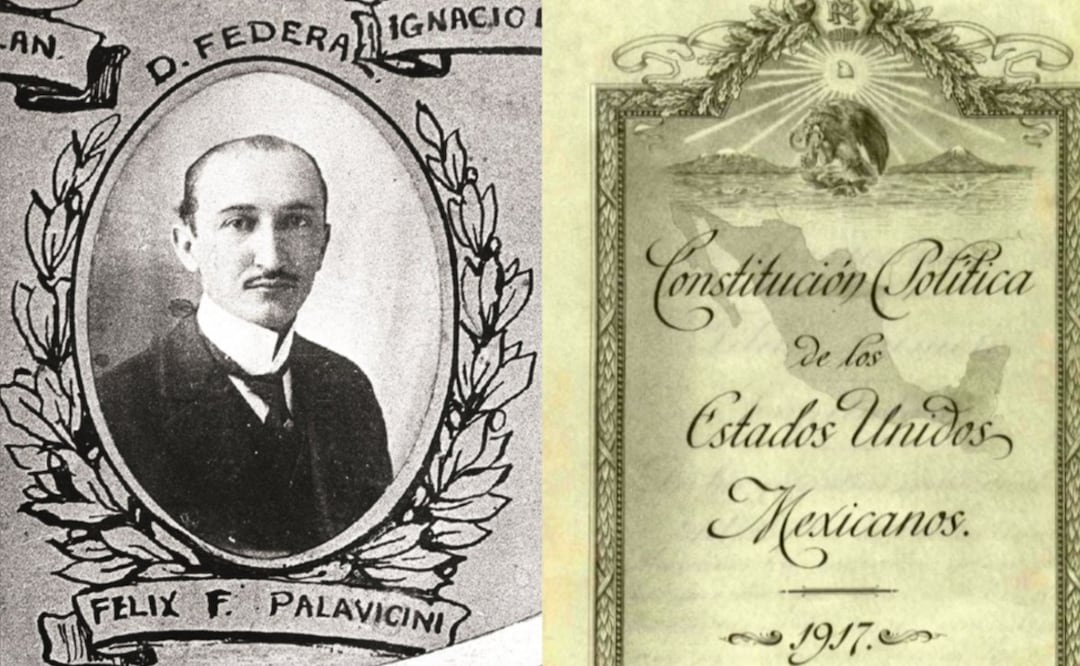 AN.
D. FEDERAL
IGNACIO
FELIX F. PALAVICINI
Constitución Política
de los
Estados Unidos
Mexicanos.
1917.